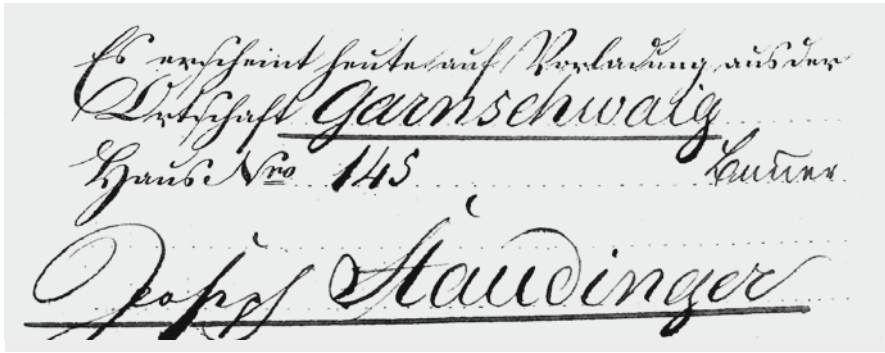 Es erscheint heute auf Vorladung aus der
Ortschaft Garnschwaig
Haus Nro 145 Bauer
Joseph Staudinger